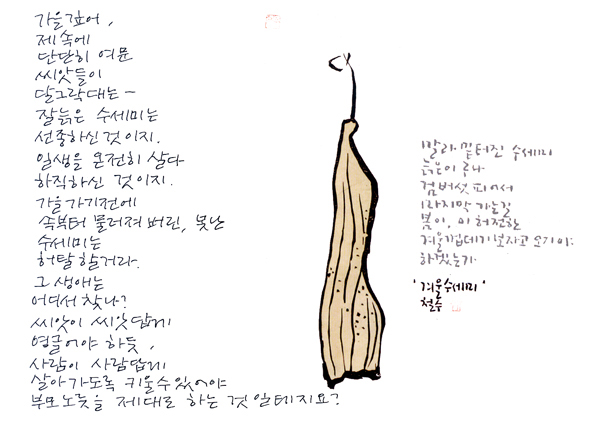 가을 깊어,
제 속에
단단히 여문
씨앗들이
달그락대는 ~
잘 늙은 수세미는
선종하신 것이지.
일생을 온전히 살다
하직하신 것이지.
가을 가기전에
속부터 물러져 버린, 못난
수세미는
허탈할거라.
그 생애는
어디서 찾나?
씨앗이 씨앗답게
영글어야 하듯,
사람이 사람답게
살아가도록 키울 수 있어야
부모노릇을 제대로 하는 것일테지요?
말라 밑터진 수세미
늙은이로나
검버섯 피어서
마지막 가는 길
봄이, 이 허전한
겨울껍데기 보자고 오기야
하겠는가
'겨울수세미'
철수